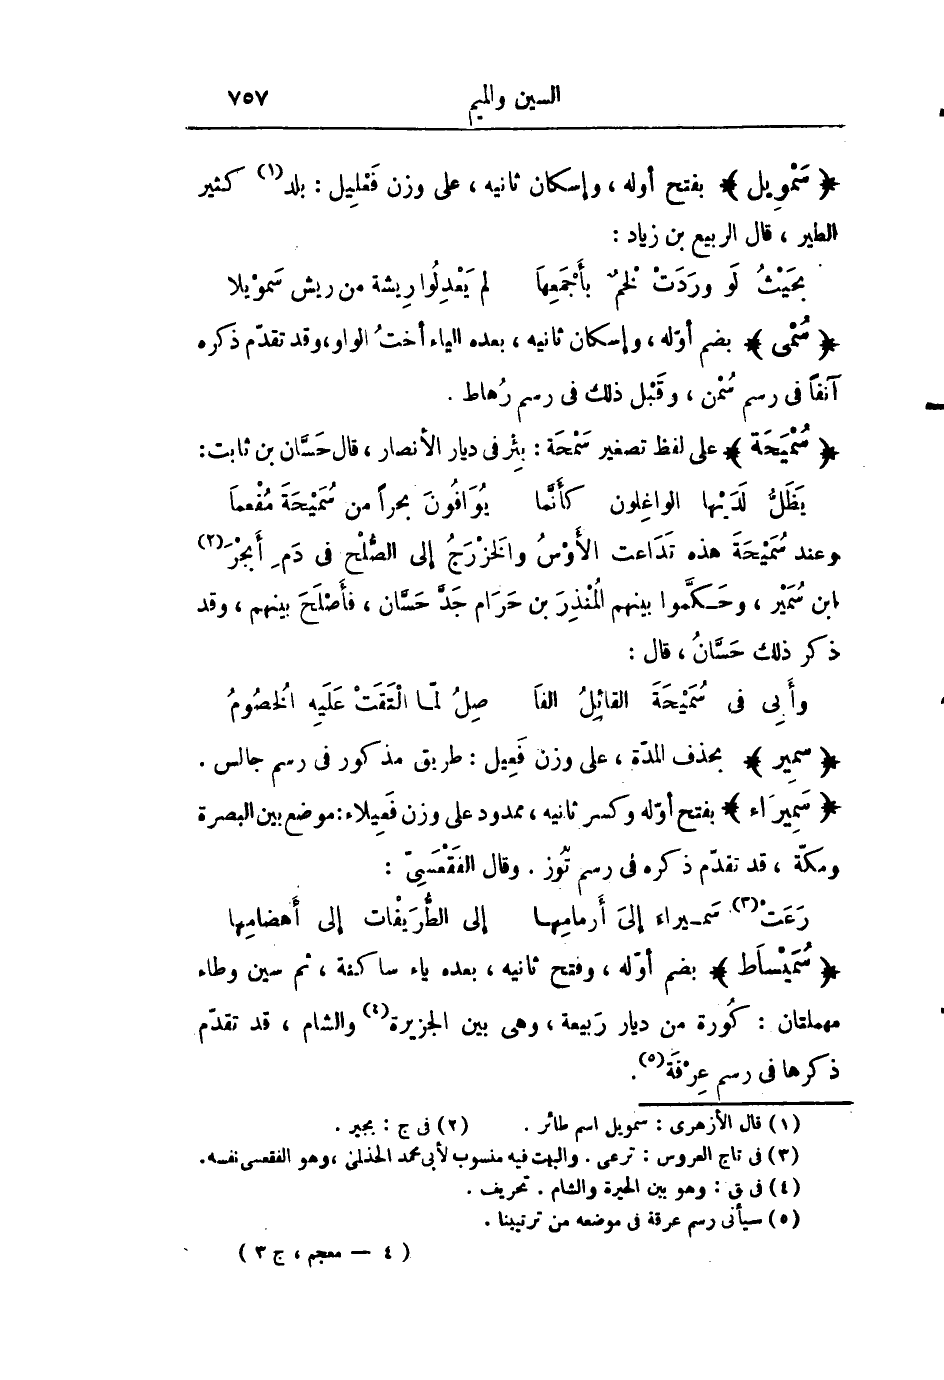 السين والميم ٧٥٧
﴿ سَمْوِيل ﴾ بفتح أوله ، وإسكان ثانيه ، على وزن فَعْلِيل : بلد(١) كثير
الطير ، قال الربيع بن زياد :
بحَيْثُ لَو ورَدَتْ لخمٌ بأَجْمَعِهَا لم يَعْدِلُوا رِيشة من ريش سَمويْلا
﴿ سُمْى ﴾ بضم أوّله ، وإسكان ثانيه ، بعده الياء أختُ الواو،وقد تقدّم ذكره
آنفاً فى رسم سُمْن ، وقَبْل ذلك فى رسم رُهاط .
﴿ سُمَيْحَة ﴾ على لفظ تصغير سَمْحَة : بِئْر فى ديار الأنصار ، قال حَسَّان بن ثابت :
يَظَلُّ لَدَيْها الواغِلون كأَنَّما يُوَافُونَ بحراً من سُمَيْحَةَ مُفْعما
وعند سُمَيْحَةَ هذه تَدَاعت الأَوْسُ والخزْرَجُ إلى الصُّلْح فى دَمِ أَبجْرَ(٢)
ابن سُمَيْر ، وحَـكَّموا بينهم المُنْذِرَ بن حَرَام جَدَّ حَسَّان ، فأَصْلَحَ بينهم ، وقد
ذكر ذلك حَسَّانُ ، قال :
وأَبِى فى سُمَيْحَةَ القائِلُ الفَا صِلُ لمّـا الْتَقَتْ عَلَيهِ الُخصُومُ
﴿ سمِير ﴾ بحذف المدّة ، على وزن فَعِيل : طريق مذكور فى رسم جالس .
﴿ سَمِيرَاء ﴾ بفتح أوّله وكسر ثانيه ، ممدود على وزن فَعِيلاء:موضع بين البصرة
ومكّة ، قد تقدّم ذكره فى رسم تُوز . وقال الفَقْعَسِىّ :
رَعَتْ(٣) سَمـيراء إلىَ أَرمامِهـا إلى الطُّرَيْفات إلى أَهضامِها
﴿ سُمَيْسَاط ﴾ بضم أوّله ، وفتح ثانيه ، بعده ياء ساكنة ، ثم سين وطاء
مهملتان : كُورة من ديار رَبيعة ، وهى بين الجزيرة(٤) والشام ، قد تقدّم
ذكرها فى رسم عِرْقَة(٥).
(١) قال الأزهرى : سمويل اسم طائر . (٢) فى ج : بجير .
(٣) فى تاج العروس : ترعى . والبهت فيه منسوب لأبى محمد الحذلمى ،وهو الفقعسى نفسه.
(٤) فى ق : وهو بين الحيرة والشام . تحريف .
(٥) سيأتى رسم عرقة فى موضعه من ترتيبنا .
( ٤ — معجم ، ج ٣ )